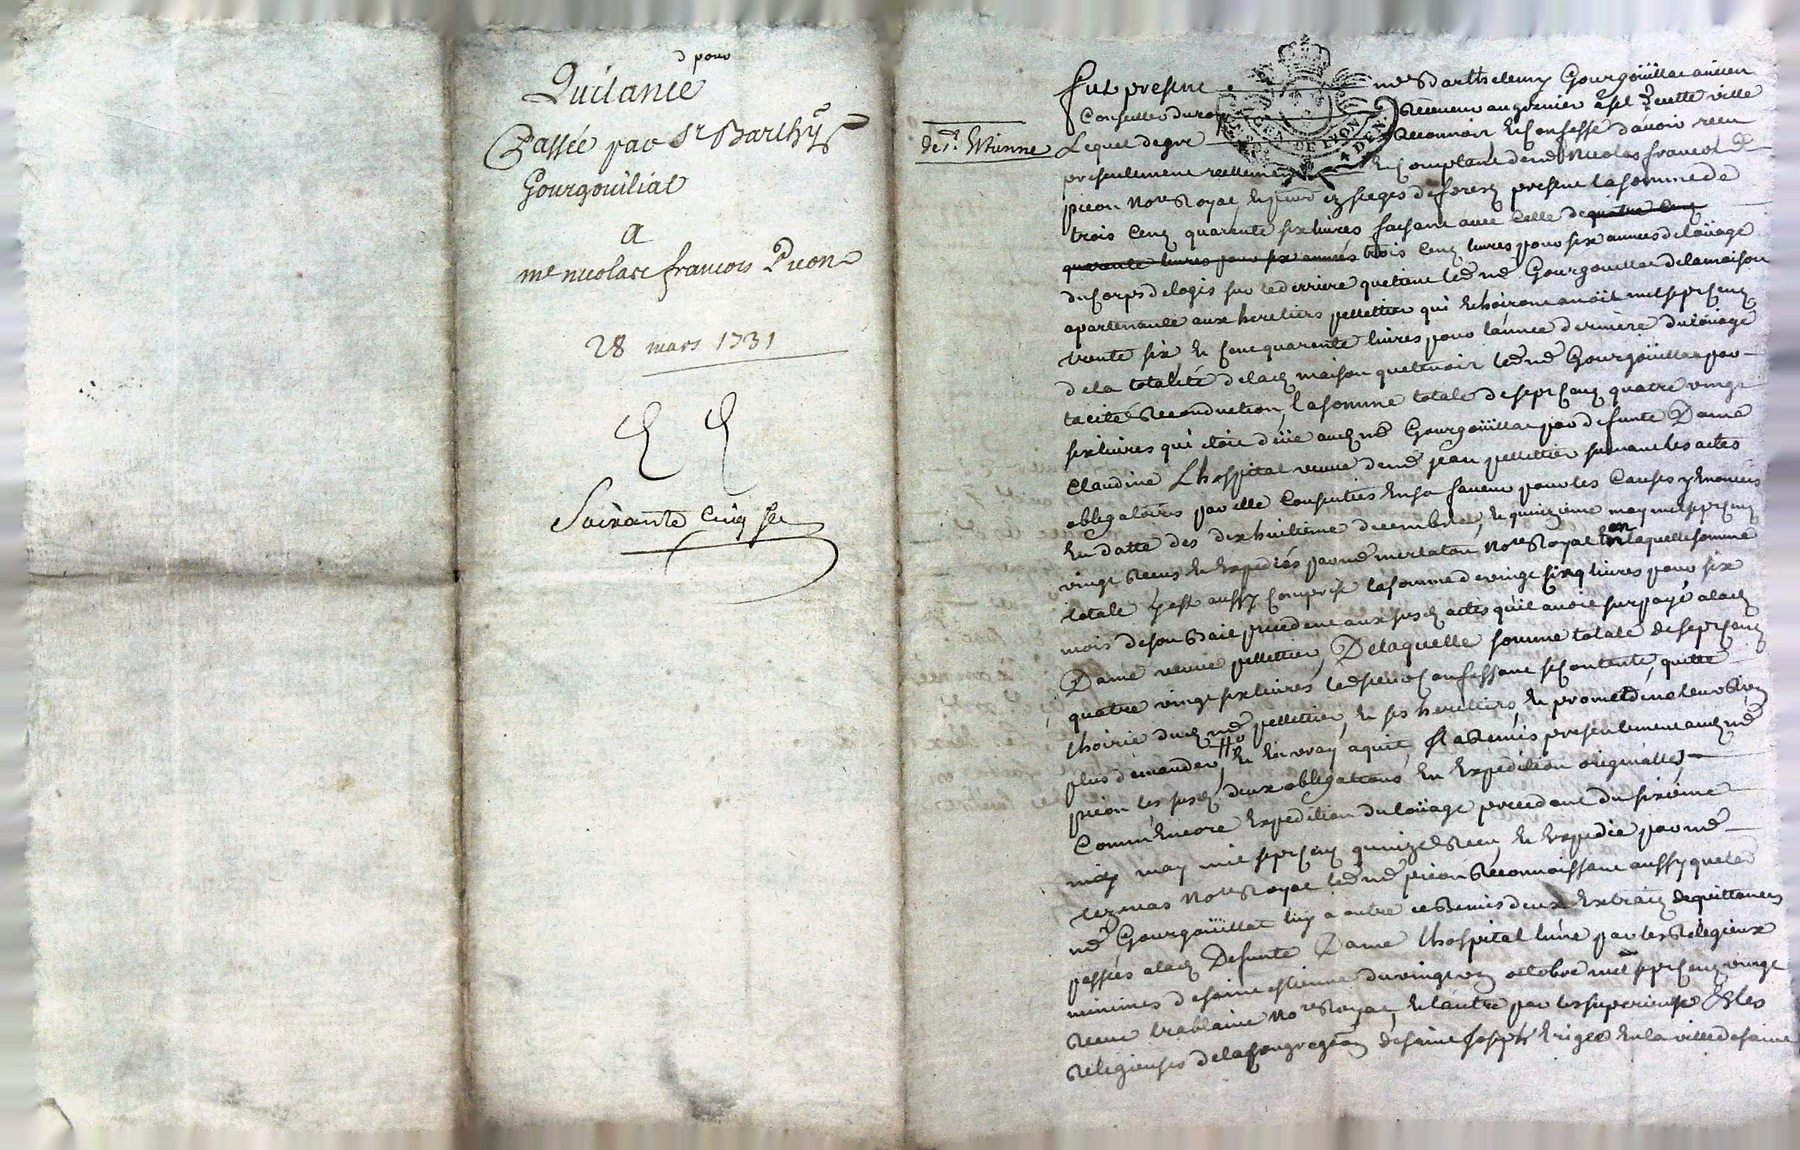 d pour
Quitance
Passée par Sr Barthy
Gourgouiliat
a
me nicolas francois Picon
28 mars 1731
Soixante cinq
GEN DE LYON
de St Etienne
fut present me Barthelemy Gourgoüillat ancien
Conseiller du roy Receveur au grenier a sel de cette ville
Lequel de gre Reconnoit et Confesse d'avoir receu
presentement reellement et Comptant de me Nicolas francois
picon Nore Royal ez sieges de forez present la somme de
trois Cenq quarente six livres faisant avec Celle de quatre Cenq
quarente livres pour six années trois Cenq livres pour six annees de loüage
du Corps de logis sur le derriere que tient led me Gourgouillat de la maison
apartenante aux heretiers pellettier qui Echoiront au mil sept Cenq
trente six, et Cent quarente livres pour l'année derniere du loüage
de la totalité de lad maison que tenoit led me Gourgoüillat par
tacite Reconduction, la somme totale de sept Cenq quatre vingt
six livres qui etoit deüe aud me Gourgoüillat par defunte Dame
Claudine Lhospital veuve de me jean pellettier suivant les actes
obligatoires par elle Consenties En sa faveur pour les Causes y Enoncées
En datte des dix huitieme decembre, et quinzieme may mil sept Cenq
vingt Receus et Expediés par me merlaton Nore Royal En laquelle somme
totale y est aussy Comprise la somme de vingt cinq livres pour six
mois de son Bail precedent aux susd actes qu'il avoit surpayé a lad
Dame veuve pellettier, De laquelle somme totale de sept Cenq
quatre vingt six livres, led sieur Confessant se Contente, quitte
l'hoirie dud me pellettier, et ses heretiers, et promet de ne leur Rien
plus demander, et En vray aquit, A Remis presentement aud me
picon les susd deux obligations En Expedition originalles
Comm'Encore Expedition du loüage precedent du sixieme
may mil sept Cenq quinze Receu et Expedie par me
Nore Royal led me picon Reconnoissant aussy que led
me Gourgoüillat luy a outre ce Remis deux Extraits de quittances
passées a lad Defunte Dame lhospital l'une par les Religieux
minimes de saint estienne du vingt octobre mil sept Cenq vingt
Receue trablaine Nore Royal, et l'autre par les superieure & les
Religieuses de la Congregaon de saint Joseph Erigée En la ville de saint